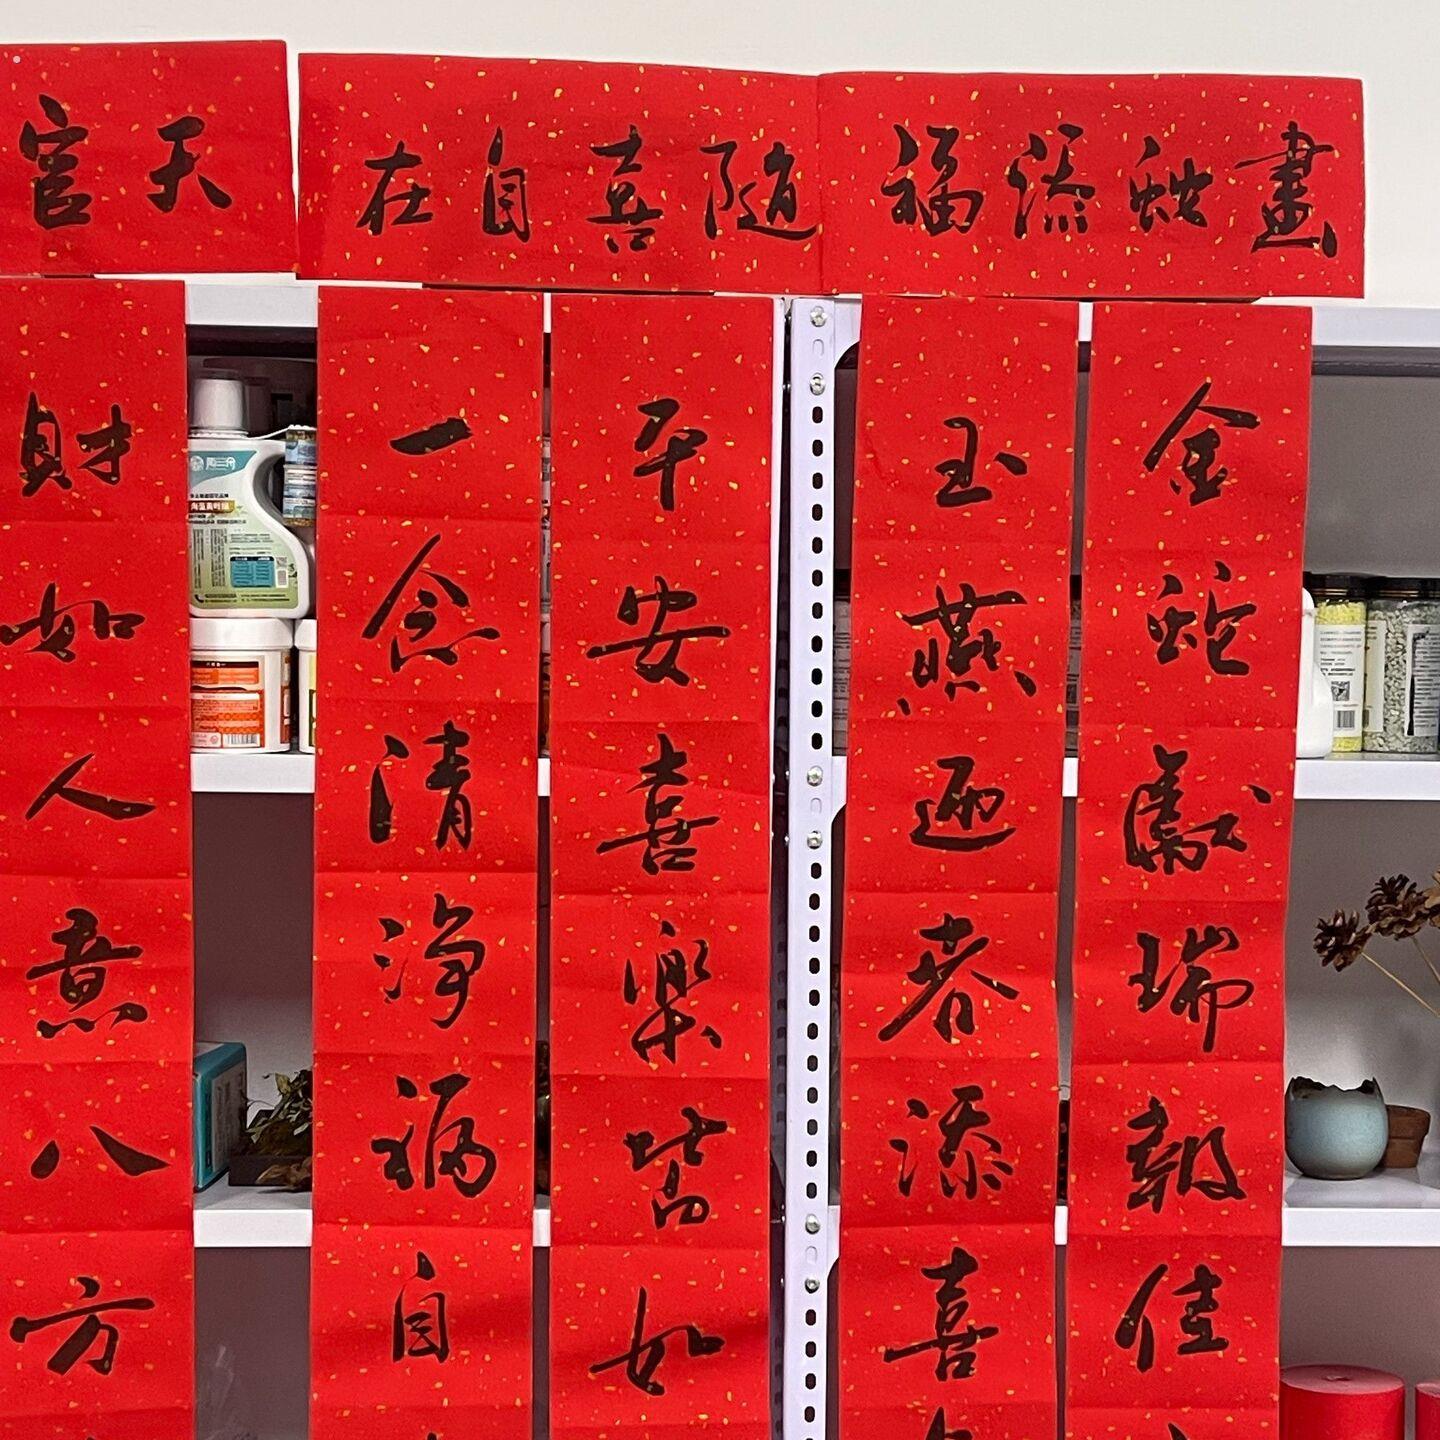 畫蛇添福
金蛇獻瑞報佳
玉燕迎春添喜
隨喜自在
平安喜樂皆如
一念清淨福自
天官
財如人意八方